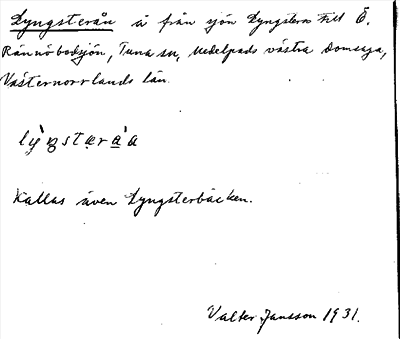 Lyngsterån å från sjön Lyngstern till Ö.
Rännöbodsjön, Tuna sn, Medelpads västra domsaga,
Västernorrlands län.
Kallas även Lyngsterbäcken.
Valter Jansson 1931.